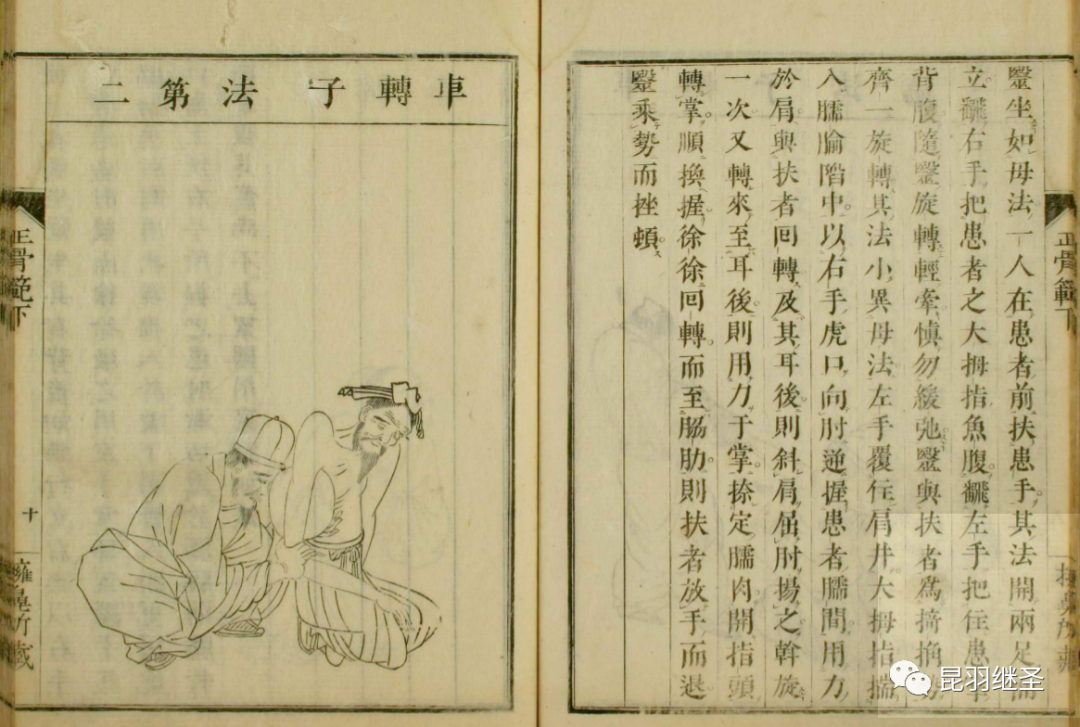 正骨範下
毉坐如母法一人在患者前扶患手其法開兩足而
立飜右手把患者之大拇指魚腹飜左手把住患掌
背腹隨毉旋轉輕牽慎勿緩弛毉與扶者爲掎角勢
齊一旋轉其法小異母法左手覆住肩井大拇指揣
入臑腧陷中以右手虎口向肘逆握患者臑間用力
於肩與扶者回轉及其耳後則斜肩屈肘揚之斡旋
一次又轉來至耳後則用力于掌捺定臑肉開指頭
轉掌順換握徐徐回轉而至脇肋則扶者放手而退
毉乘勢而挫頓
車轉子法第二
正骨範下
十
擁鼻所藏
昆羽继圣